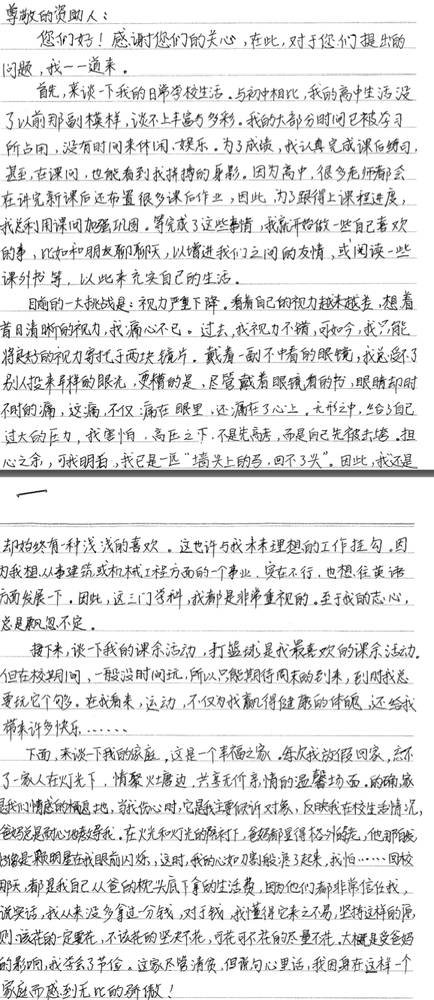 尊敬的资助人：
您们好！感谢您们的关心，在此，对于您们提出的
问题，我一一道来。
首先，来谈一下我的日常学校生活。与初中相比，我的高中生活没
了以前那副模样，谈不上丰富与多彩。我的大部分时间已被学习
所占用，没有时间来休闲、娱乐。为了成绩，我认真完成课后练习，
甚至，在课间，也能看到我拼搏的身影。因为高中，很多老师都会
在讲完新课后还布置很多课后作业，因此，为了跟得上课程进度，
我总利用课间加强巩固。等完成了这些事情，我就开始做一些自己喜欢
的事，比如和朋友聊聊天，以增进我们之间的友情，或阅读一些
课外书等，以此来充实自己的生活。
目前的一大挑战是：视力严重下降。看着自己的视力越来越差，想着
昔日清晰的视力，我痛心不已。过去，我视力不错，可如今，我只能
将良好的视力寄托于两块镜片。戴着一副不中看的眼镜，我总受不了
别人投来异样的眼光，更糟的是，尽管戴着眼镜看的书，眼睛却时
不时的痛，这痛，不仅痛在眼里，还痛在了心上。无形之中，给了自己
过大的压力，我害怕，高压之下，不是先高考，而是自己先被击垮。担
心之余，可我明白，我已是一匹“墙头上的马，回不了头”。因此，我还是
一
却始终有一种浅浅的喜欢。这也许与我未来理想的工作挂勾。因
为我想从事建筑或机械工程方面的一个事业，实在不行，也想往英语
方面发展一下。因此，这三门学科，我都是非常重视的。至于我的志心，
总是飘忽不定。
接下来，谈一下我的课余活动，打篮球是我最喜欢的课余活动。
但在校期间，一般没时间玩，所以只能期待周末的到来，到时我总
要玩它个够。在我看来，运动，不仅为我赢得健康的体魄，还给我
带来许多快乐……
下面，来谈一下我的家庭，这是一个幸福之家。每次我放假回家，忘不
了一家人在灯光下，情聚火塘边，共享无价亲情的温馨场面。的确，家
是我们情感的栖息地，当我伤心时，它是我主要倾诉对象，反映我在校生活情况，
爸妈总是耐心地教导我。在火光和灯光的照衬下，爸妈都显得格外的老，他那白发
就像是颗明星在我眼前闪烁，这时，我的心如刀割般疼了起来，我怕……回校
那天，都是我自己从爸的枕头底下拿的生活费，因为他们都非常信任我，
说实话，我从来没多拿过一分钱，对于钱，我懂得它来之不易，坚持这样的原
则：该花的一定要花，不该花的坚决不花，可花可不花的尽量不花。大概是受爸妈
的影响，我学会了节俭。这家尽管清贫，但说句心里话，我因身在这样一个
家庭而感到无比的骄傲！